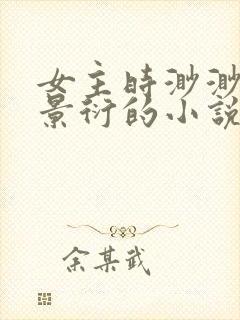 女主时渺渺
景衍的小说
余某武